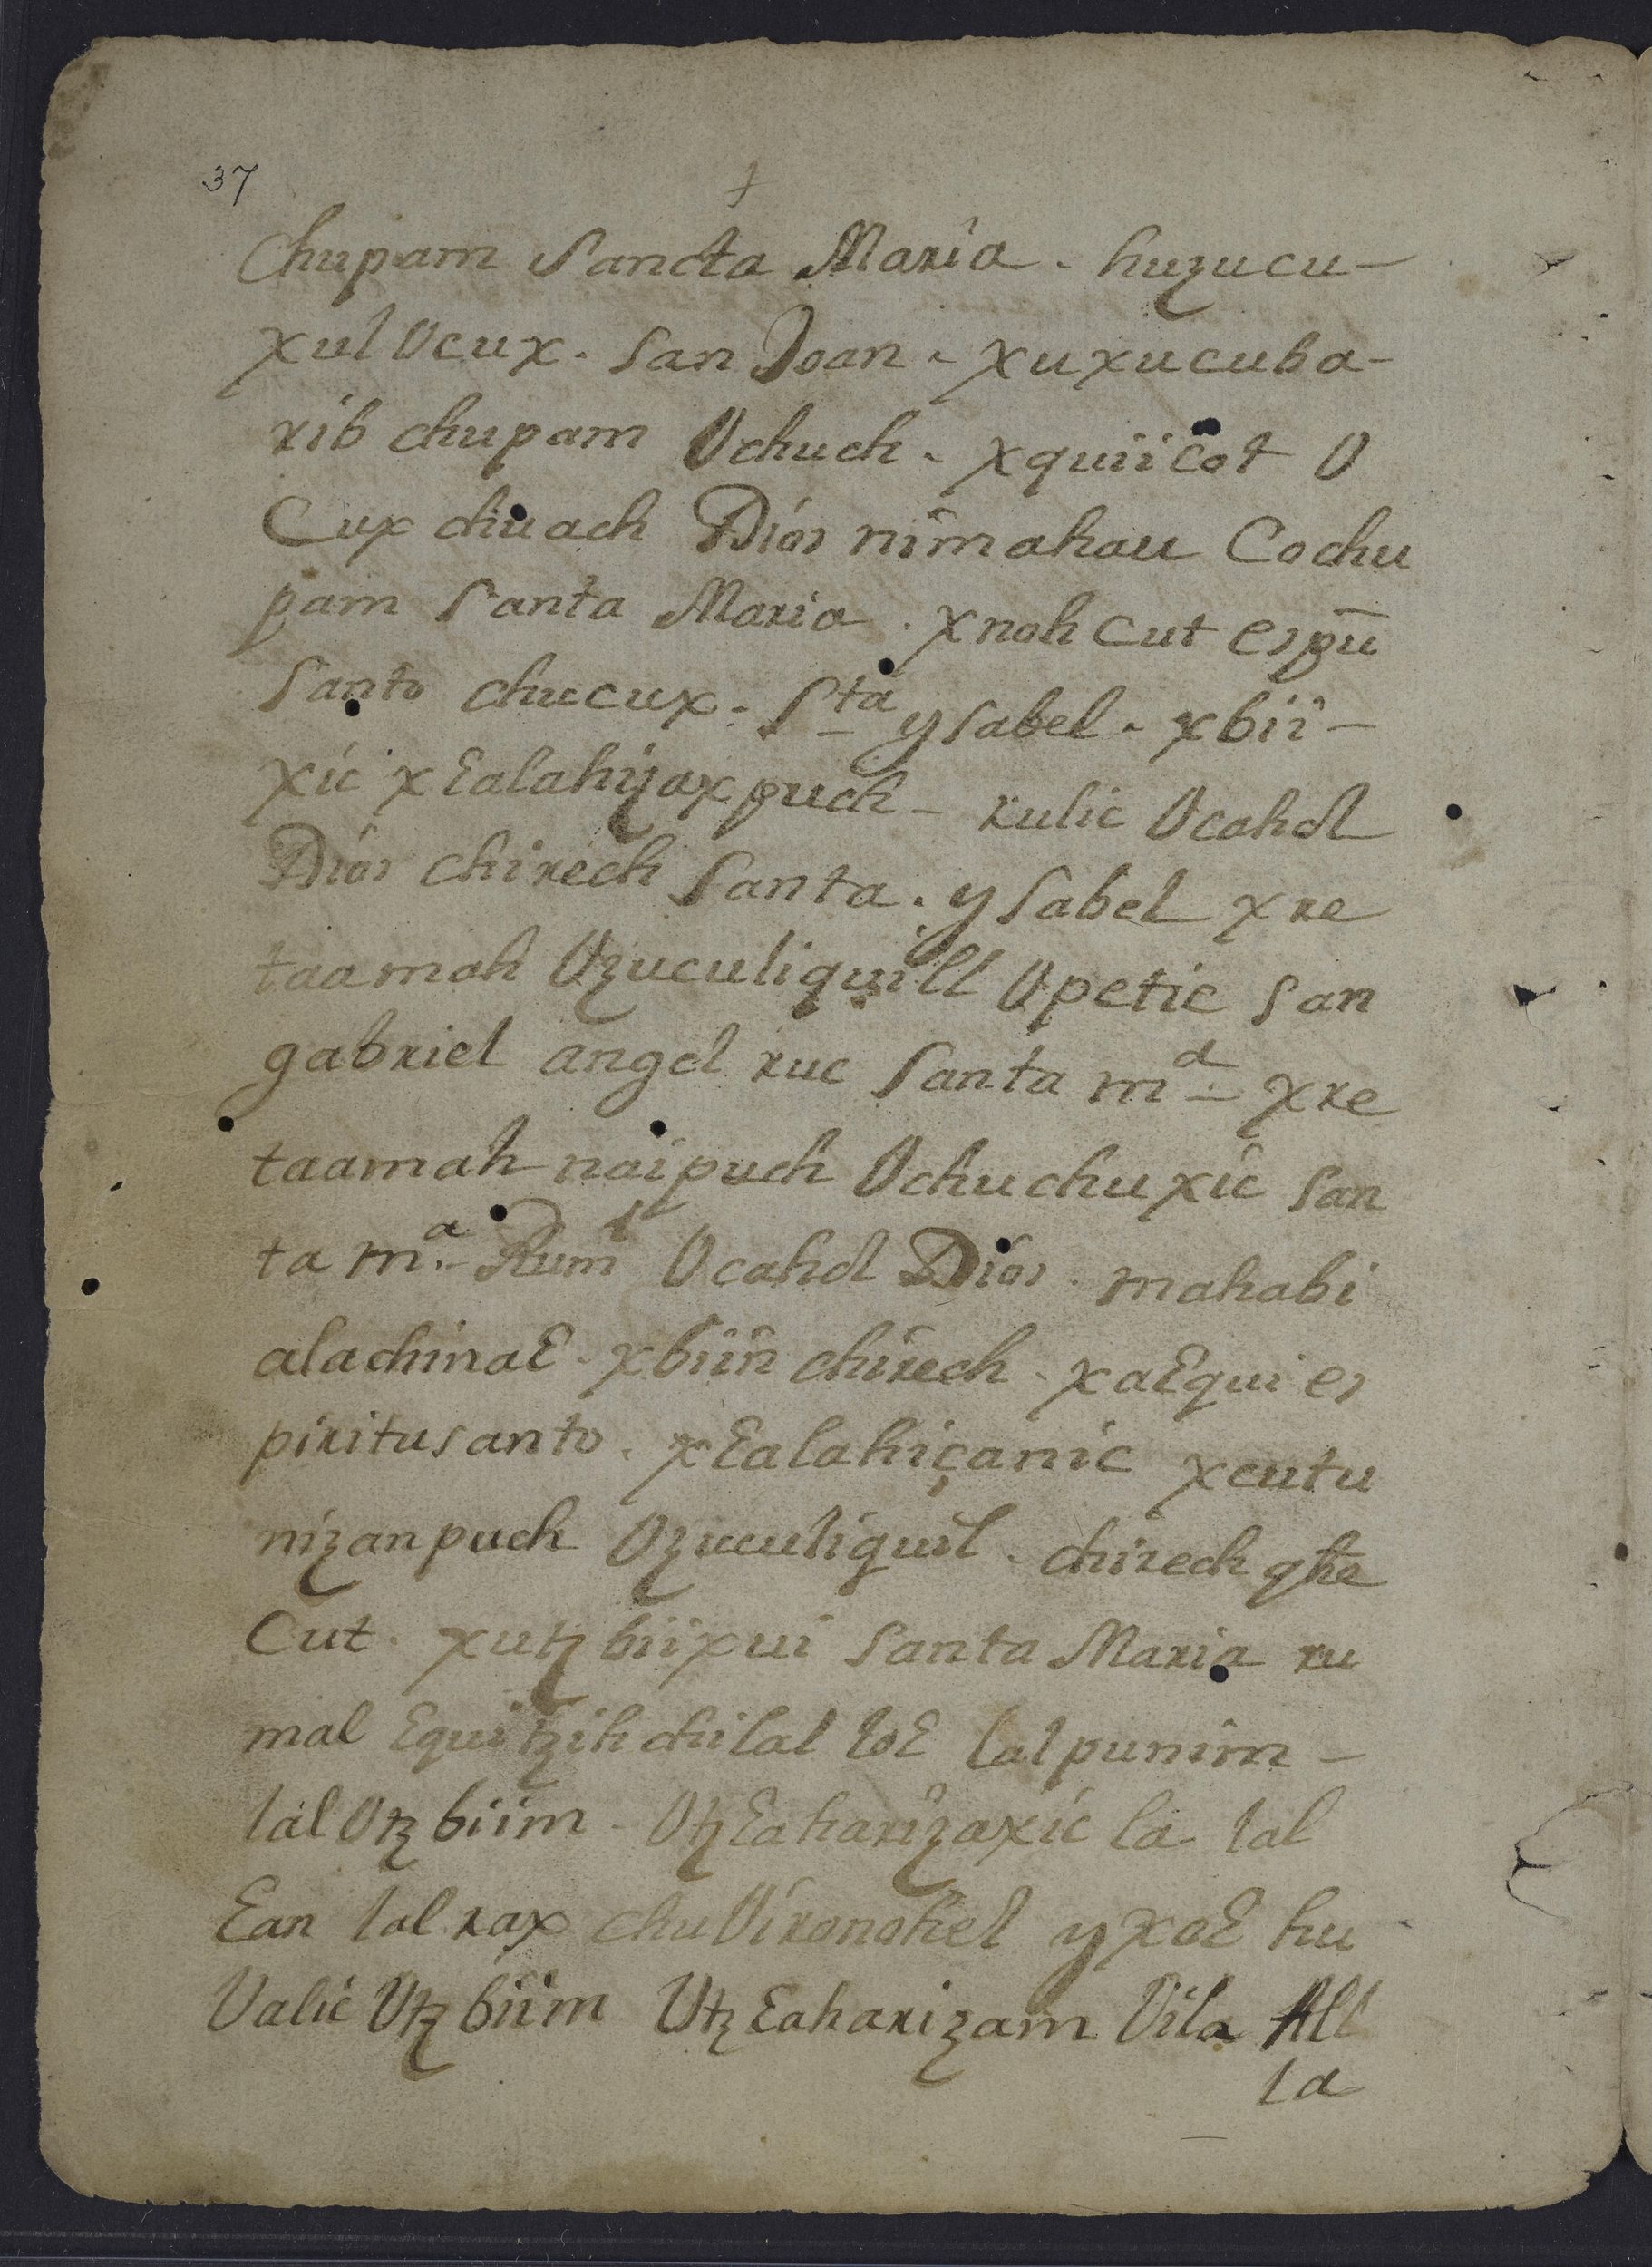 37
†
Chupam Sancta Maria. huzucu-
xul Ucux. San Joan. xuxucuba-
rib chupam Uchuch. xquiicot U
Cux chuach Dios nimahau Cochu
pam Santa Maria. xnoh cut espū
Santo chucux. Sta ysabel. xbii-
xic xεalahizax puch- rulic Ucahol
Dios chirech Santa. ysabel xre
taamah Uzuculiquill Upetic San
gabriel angel ruc Santa ma xre
taamah naipuch Uchuchuxic San
ta ma. Rumal Ucahol Dios. mahabi
alachinaε. xbiin chirech. xaεqui es
piritusanto. xεalahiçanic xcutu
nizan puch Uzuculiquil. chirech qhe
Cut. xutz biixui Santa Maria ru
mal εqui tzih chilal loε lal punim-
lal Utz biim. Utz εaharizaxic la- lal
εan lal rax chuUironohel yxoε hu
Ualic Utz biim Utz εaharizam Uila All
la